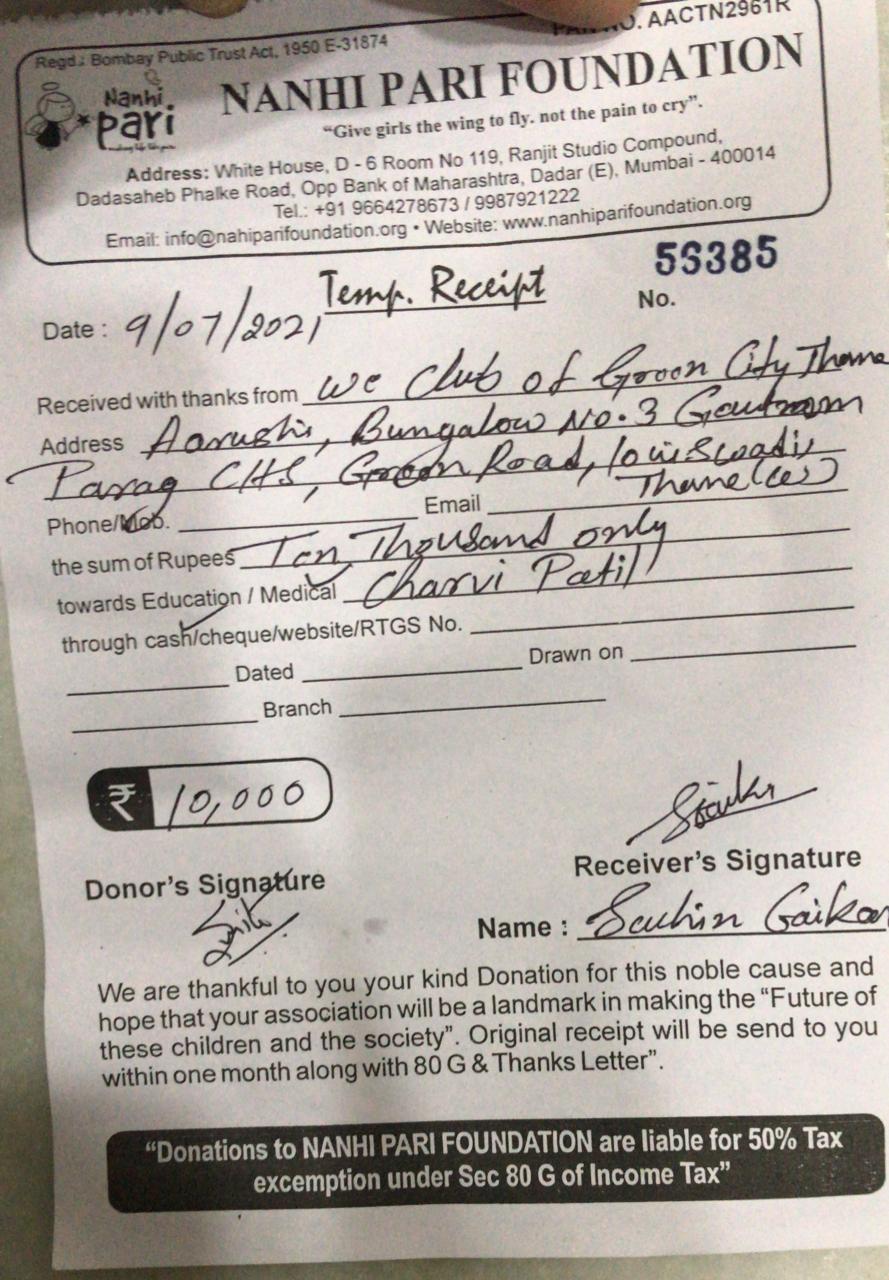 PAN NO. AACTN2961R
Regd.: Bombay Public Trust Act, 1950 E-31874
Nanhi
Pari
NANHI PARI FOUNDATION
"Give girls the wing to fly. not the pain to cry".
Address: White House, D - 6 Room No 119, Ranjit Studio Compound,
Dadasaheb Phalke Road, Opp Bank of Maharashtra, Dadar (E), Mumbai - 400014
Tel.: +91 9664278673 / 9987921222
Email: info@nahiparifoundation.org • Website: www.nanhiparifoundation.org
Temp. Receipt
No. 5S385
Date : 9/07/2021
Received with thanks from We Club of Green City Thane
Address Aarushi, Bungalow No. 3 Gautam
Parag CHS, Green Road,
Thane (w)
Phone/Mob. Email
the sum of Rupees Ten Thousand only
towards Education / Medical Charvi Patil
through cash/cheque/website/RTGS No.
Dated Drawn on
Branch
₹ 10,000
Donor's Signature
Receiver's Signature
Name : Sachin Gaikar
We are thankful to you your kind Donation for this noble cause and
hope that your association will be a landmark in making the "Future of
these children and the society". Original receipt will be send to you
within one month along with 80 G & Thanks Letter".
"Donations to NANHI PARI FOUNDATION are liable for 50% Tax
excemption under Sec 80 G of Income Tax"